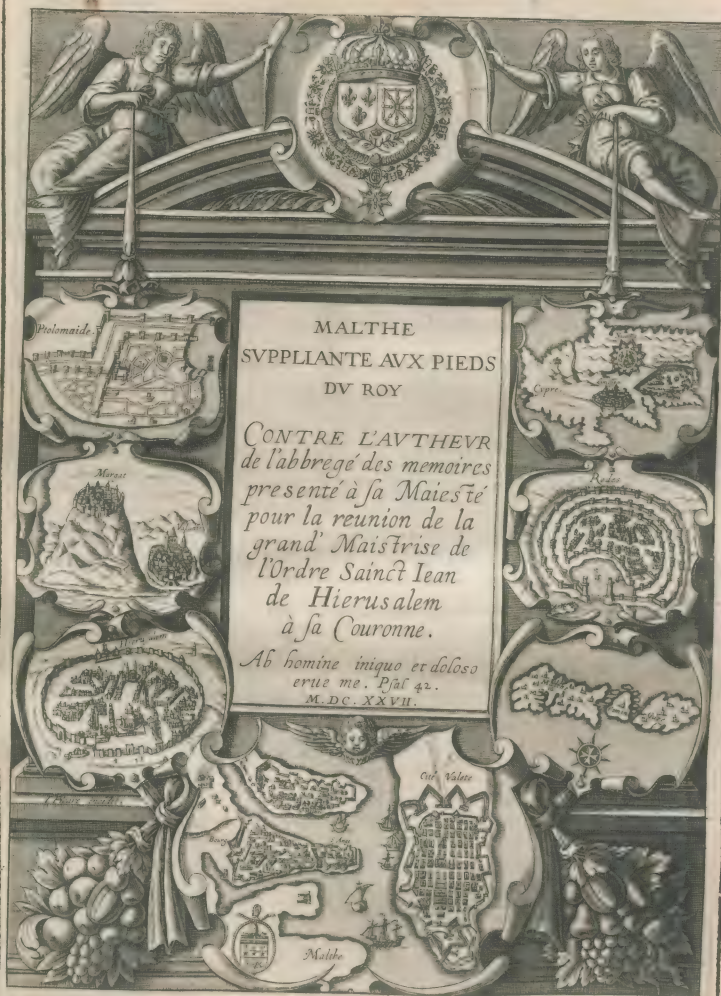 Ptolomaide
MALTHE
SVPPLIANTE AVX PIEDS
DV ROY
CONTRE L'AVTHEVR
de l'abbregé des memoires
presenté à sa Maiesté
pour la reunion de la
grand' Maistrise de
l'Ordre Sainct Iean
de Hierusalem
à sa Couronne.
Ab homine iniquo et doloso
erue me. Psal 42.
M.DC.XXVII.
Cypre
Margat
Rodes
Hierusalem
Cité Valete
Bourg
Malthe